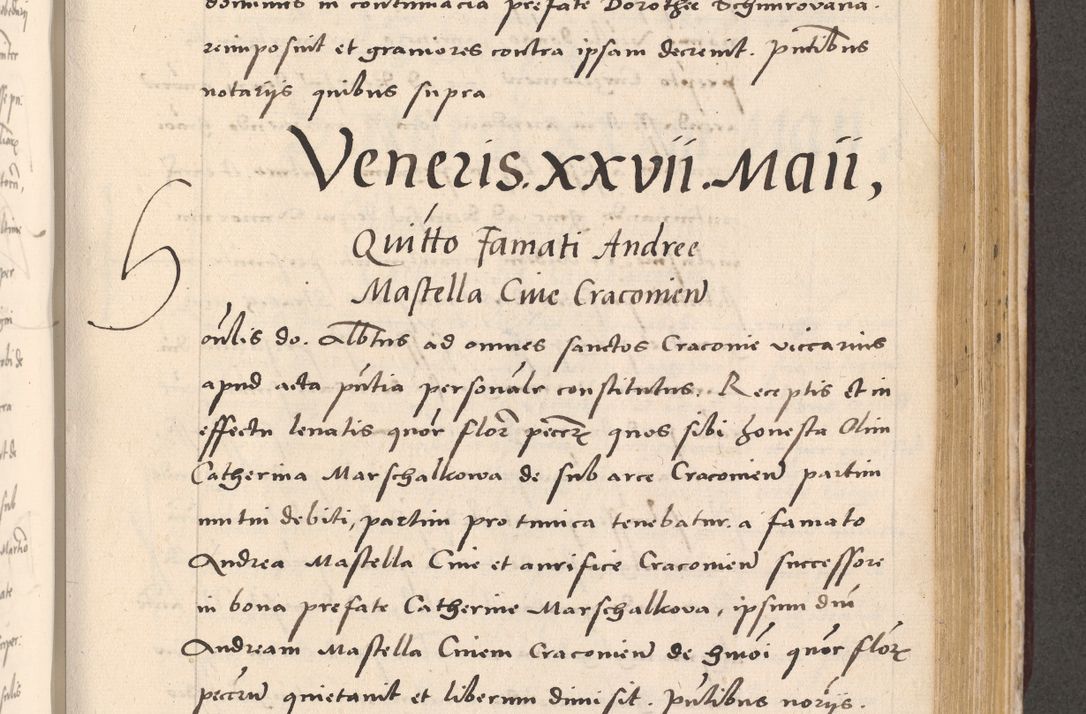 dominus in contumacia prefate Dorothee Schmrovana.
reimposuit et graviores contra ipsam decrevit. pntibus
notariis quibus supra
Veneris. xxvii. Maii,
Quitto Famati Andree
Mastella Cive Cracovien
onlis do. Albtus ad omnes sanctos Cracovie viccarius
apud acta pntia personalr constitutus. Receptis et in
effectu levatis quor flor peccar quos sibi honesta Olim
Catherina Marschalkowa de sub arce Cracovien partim
mutui debiti, partim pro tunica tenebatur. a famato
Andrea Mastella Cive et aurifice Cracovien successore
in bona prefate Catherine Marschalkova, ipsum dnm
Andream Mastella Civem Cracovien de hmoi quor flor
peccun quietavit et liberum dimisit. pntibus noriis.